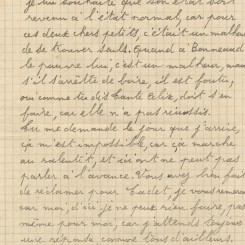 je lui souhaite que son état soit
revenu à l'état normal, car pour
ces deux chers petits, c'était un malheur
de se trouver seuls. Quand à Bonnenud
le pauvre lui, c'est un malheur, mais
s'il s'arrête de boire, il est foutu,
ou comme tu dis tante Eliz, doit s'en
faire, car elle n'a pas réussis.
Tu me demande le jour que j'arrive,
ça m'est impossible, car ça marche
au ralentit, et ici on ne peut pas
parler à l'avance. Vous avez bien fait
de réclamer pour Cadet je vous remercie
car moi, d'ici je ne peux rien faire, pas
même pour moi, car j'attends toujours
une réponde comme tous d'ailleurs